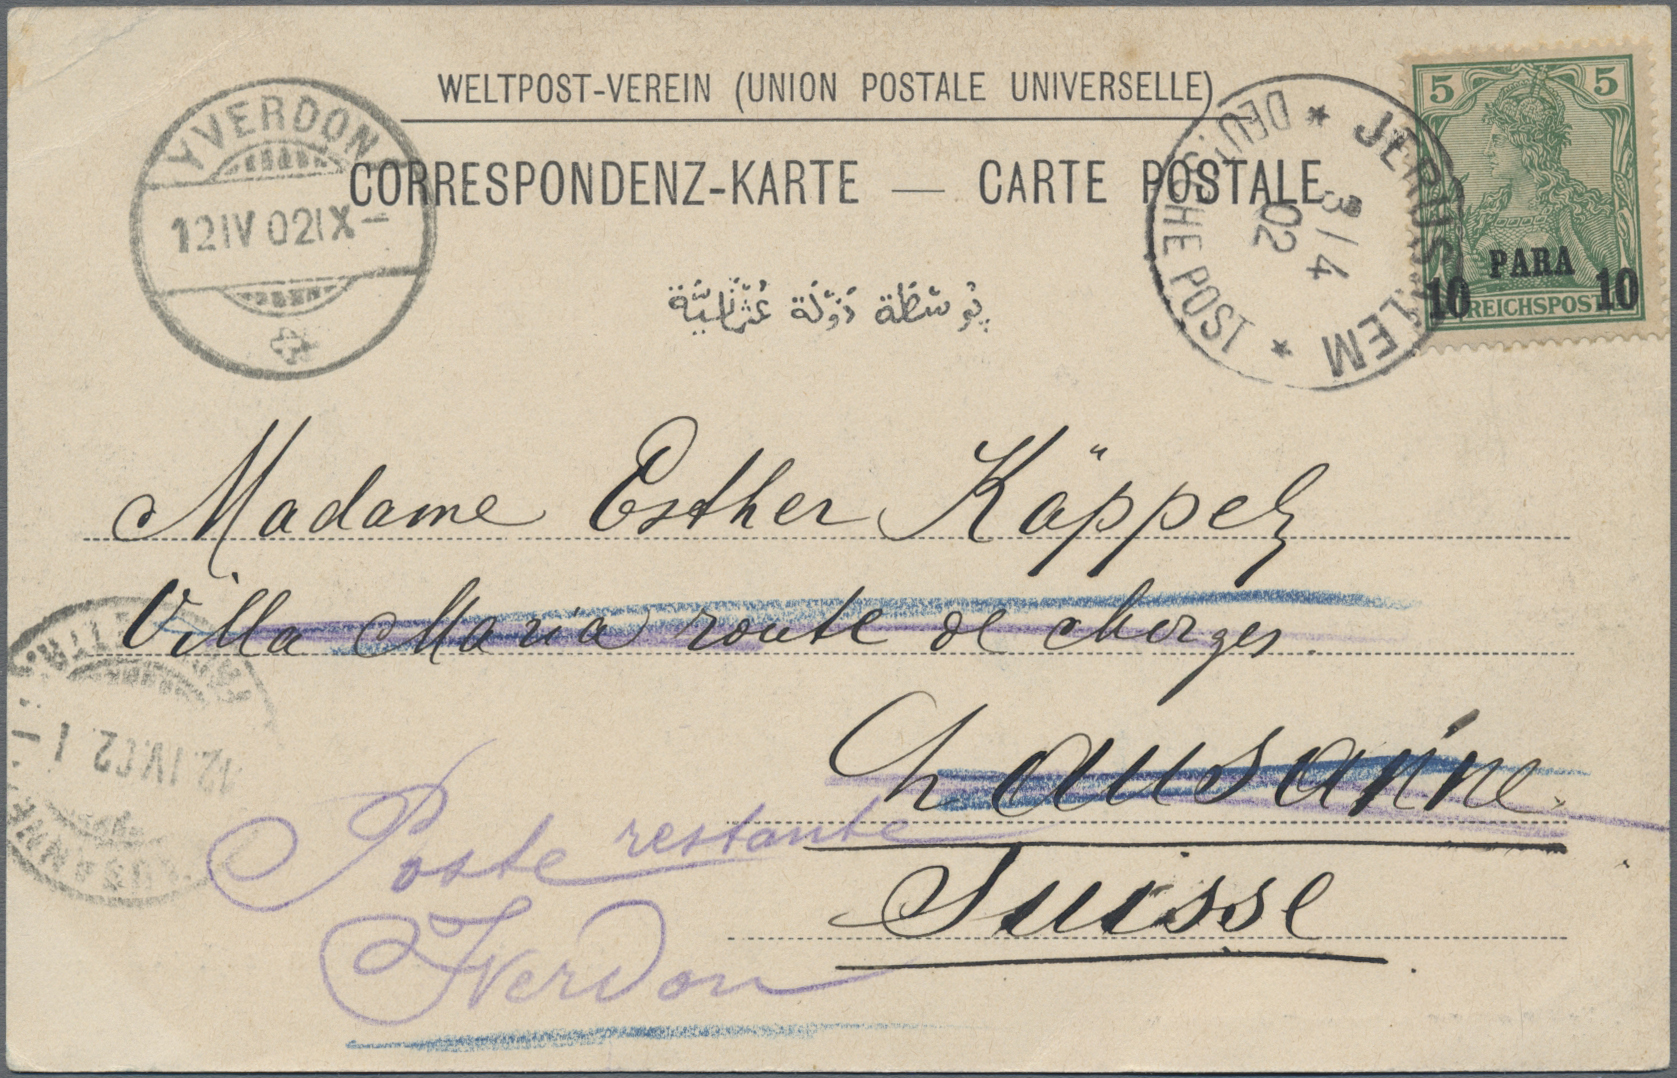 WELTPOST-VEREIN (UNION POSTALE UNIVERSELLE)
CORRESPONDENZ-KARTE — CARTE POSTALE
پوسطه دولة عثمانية
YVERDON
12 IV 02 IX –
JERUSALEM
3/4
02
* DEUTSCHE POST *
5 5
PARA
10 10
REICHSPOST
Madame Esther Käppeli
Villa Maria route de Morges.
Lausanne.
Suisse
Poste restante
Yverdon
12. IV 02. 1 –
LAUSANNE